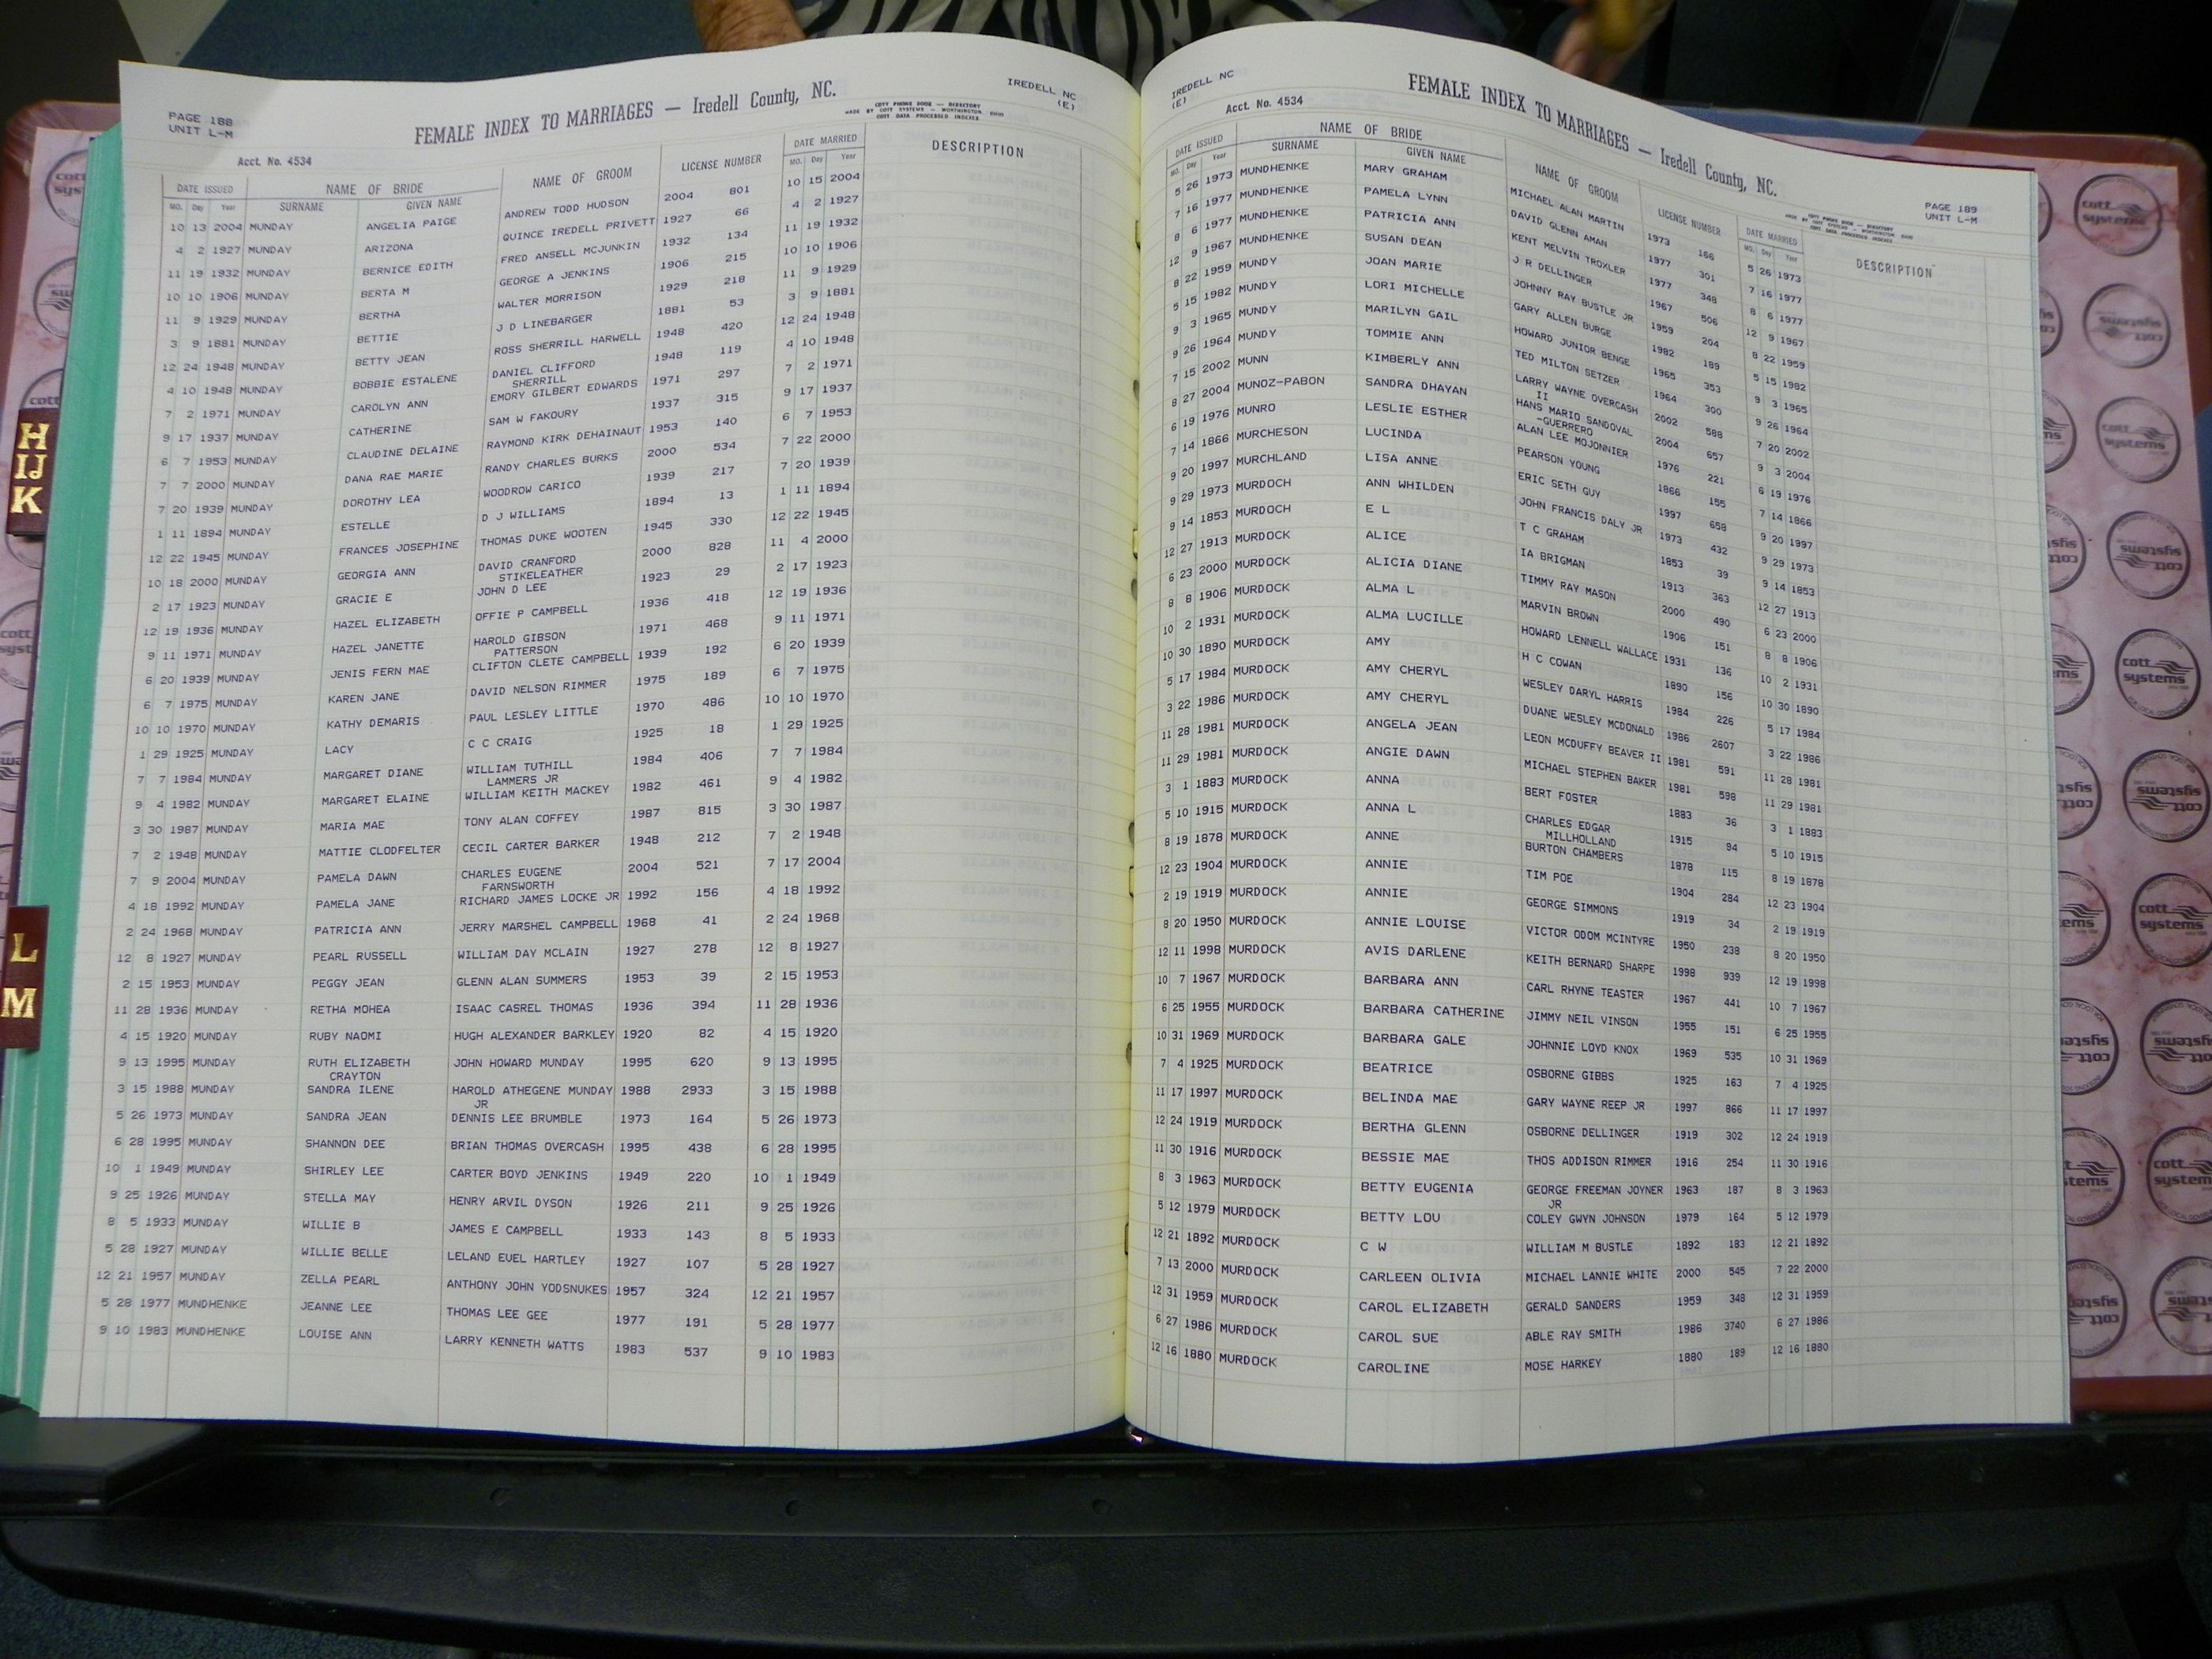 PAGE 188
UNIT L-M
FEMALE INDEX TO MARRIAGES — Iredell County, NC.
IREDELL NC
(E)
COTT PHONE BOOK — DIRECTORY
MADE BY COTT SYSTEMS — WORTHINGTON OHIO
COTT DATA PROCESSED INDEXES
Acct. No. 4534
DATE ISSUED NAME OF BRIDE NAME OF GROOM LICENSE NUMBER DATE MARRIED DESCRIPTION
MO. Day Year SURNAME GIVEN NAME MO. Day Year
10 13 2004 MUNDAY ANGELIA PAIGE ANDREW TODD HUDSON 2004 801 10 15 2004
4 2 1927 MUNDAY ARIZONA QUINCE IREDELL PRIVETT 1927 66 4 2 1927
11 19 1932 MUNDAY BERNICE EDITH FRED ANSELL MCJUNKIN 1932 134 11 19 1932
10 10 1906 MUNDAY BERTA M GEORGE A JENKINS 1906 215 10 10 1906
11 9 1929 MUNDAY BERTHA WALTER MORRISON 1929 218 11 9 1929
3 9 1881 MUNDAY BETTIE J D LINEBARGER 1881 53 3 9 1881
12 24 1948 MUNDAY BETTY JEAN ROSS SHERRILL HARWELL 1948 420 12 24 1948
4 10 1948 MUNDAY BOBBIE ESTALENE DANIEL CLIFFORD 1948 119 4 10 1948
SHERRILL
7 2 1971 MUNDAY CAROLYN ANN EMORY GILBERT EDWARDS 1971 297 7 2 1971
9 17 1937 MUNDAY CATHERINE SAM W FAKOURY 1937 315 9 17 1937
6 7 1953 MUNDAY CLAUDINE DELAINE RAYMOND KIRK DEHAINAUT 1953 140 6 7 1953
7 7 2000 MUNDAY DANA RAE MARIE RANDY CHARLES BURKS 2000 534 7 22 2000
7 20 1939 MUNDAY DOROTHY LEA WOODROW CARICO 1939 217 7 20 1939
1 11 1894 MUNDAY ESTELLE D J WILLIAMS 1894 13 1 11 1894
12 22 1945 MUNDAY FRANCES JOSEPHINE THOMAS DUKE WOOTEN 1945 330 12 22 1945
10 18 2000 MUNDAY GEORGIA ANN DAVID CRANFORD 2000 828 11 4 2000
STIKELEATHER
2 17 1923 MUNDAY GRACIE E JOHN D LEE 1923 29 2 17 1923
12 19 1936 MUNDAY HAZEL ELIZABETH OFFIE P CAMPBELL 1936 418 12 19 1936
9 11 1971 MUNDAY HAZEL JANETTE HAROLD GIBSON 1971 468 9 11 1971
PATTERSON
6 20 1939 MUNDAY JENIS FERN MAE CLIFTON CLETE CAMPBELL 1939 192 6 20 1939
6 7 1975 MUNDAY KAREN JANE DAVID NELSON RIMMER 1975 189 6 7 1975
10 10 1970 MUNDAY KATHY DEMARIS PAUL LESLEY LITTLE 1970 486 10 10 1970
1 29 1925 MUNDAY LACY C C CRAIG 1925 18 1 29 1925
7 7 1984 MUNDAY MARGARET DIANE WILLIAM TUTHILL 1984 406 7 7 1984
LAMMERS JR
9 4 1982 MUNDAY MARGARET ELAINE WILLIAM KEITH MACKEY 1982 461 9 4 1982
3 30 1987 MUNDAY MARIA MAE TONY ALAN COFFEY 1987 815 3 30 1987
7 2 1948 MUNDAY MATTIE CLODFELTER CECIL CARTER BARKER 1948 212 7 2 1948
7 9 2004 MUNDAY PAMELA DAWN CHARLES EUGENE 2004 521 7 17 2004
FARNSWORTH
4 18 1992 MUNDAY PAMELA JANE RICHARD JAMES LOCKE JR 1992 156 4 18 1992
2 24 1968 MUNDAY PATRICIA ANN JERRY MARSHEL CAMPBELL 1968 41 2 24 1968
12 8 1927 MUNDAY PEARL RUSSELL WILLIAM DAY MCLAIN 1927 278 12 8 1927
2 15 1953 MUNDAY PEGGY JEAN GLENN ALAN SUMMERS 1953 39 2 15 1953
11 28 1936 MUNDAY RETHA MOHEA ISAAC CASREL THOMAS 1936 394 11 28 1936
4 15 1920 MUNDAY RUBY NAOMI HUGH ALEXANDER BARKLEY 1920 82 4 15 1920
9 13 1995 MUNDAY RUTH ELIZABETH JOHN HOWARD MUNDAY 1995 620 9 13 1995
CRAYTON
3 15 1988 MUNDAY SANDRA ILENE HAROLD ATHEGENE MUNDAY 1988 2933 3 15 1988
JR
5 26 1973 MUNDAY SANDRA JEAN DENNIS LEE BRUMBLE 1973 164 5 26 1973
6 28 1995 MUNDAY SHANNON DEE BRIAN THOMAS OVERCASH 1995 438 6 28 1995
10 1 1949 MUNDAY SHIRLEY LEE CARTER BOYD JENKINS 1949 220 10 1 1949
9 25 1926 MUNDAY STELLA MAY HENRY ARVIL DYSON 1926 211 9 25 1926
8 5 1933 MUNDAY WILLIE B JAMES E CAMPBELL 1933 143 8 5 1933
5 28 1927 MUNDAY WILLIE BELLE LELAND EUEL HARTLEY 1927 107 5 28 1927
12 21 1957 MUNDAY ZELLA PEARL ANTHONY JOHN YODSNUKES 1957 324 12 21 1957
5 28 1977 MUNDHENKE JEANNE LEE THOMAS LEE GEE 1977 191 5 28 1977
9 10 1983 MUNDHENKE LOUISE ANN LARRY KENNETH WATTS 1983 537 9 10 1983
IREDELL NC
(E)
FEMALE INDEX TO MARRIAGES — Iredell County, NC.
Acct. No. 4534
PAGE 189
UNIT L-M
DATE ISSUED NAME OF BRIDE NAME OF GROOM LICENSE NUMBER DATE MARRIED DESCRIPTION
MO. Day Year SURNAME GIVEN NAME MO. Day Year
5 26 1973 MUNDHENKE MARY GRAHAM MICHAEL ALAN MARTIN 1973 166 5 26 1973
7 16 1977 MUNDHENKE PAMELA LYNN DAVID GLENN AMAN 1977 301 7 16 1977
8 6 1977 MUNDHENKE PATRICIA ANN KENT MELVIN TROXLER 1977 348 8 6 1977
12 9 1967 MUNDHENKE SUSAN DEAN J R DELLINGER 1967 506 12 9 1967
8 22 1959 MUNDY JOAN MARIE JOHNNY RAY BUSTLE JR 1959 204 8 22 1959
5 15 1982 MUNDY LORI MICHELLE GARY ALLEN BURGE 1982 189 5 15 1982
9 3 1965 MUNDY MARILYN GAIL HOWARD JUNIOR BENGE 1965 353 9 3 1965
9 26 1964 MUNDY TOMMIE ANN TED MILTON SETZER 1964 300 9 26 1964
7 15 2002 MUNN KIMBERLY ANN LARRY WAYNE OVERCASH 2002 588 7 20 2002
II
8 27 2004 MUNOZ-PABON SANDRA DHAYAN HANS MARIO SANDOVAL 2004 657 9 3 2004
-GUERRERO
6 19 1976 MUNRO LESLIE ESTHER ALAN LEE MOJONNIER 1976 221 6 19 1976
7 14 1866 MURCHESON LUCINDA PEARSON YOUNG 1866 155 7 14 1866
9 20 1997 MURCHLAND LISA ANNE ERIC SETH GUY 1997 658 9 20 1997
9 29 1973 MURDOCH ANN WHILDEN JOHN FRANCIS DALY JR 1973 432 9 29 1973
9 14 1853 MURDOCH E L T C GRAHAM 1853 39 9 14 1853
12 27 1913 MURDOCK ALICE IA BRIGMAN 1913 363 12 27 1913
6 23 2000 MURDOCK ALICIA DIANE TIMMY RAY MASON 2000 490 6 23 2000
8 8 1906 MURDOCK ALMA L MARVIN BROWN 1906 151 8 8 1906
10 2 1931 MURDOCK ALMA LUCILLE HOWARD LENNELL WALLACE 1931 136 10 2 1931
10 30 1890 MURDOCK AMY H C COWAN 1890 156 10 30 1890
5 17 1984 MURDOCK AMY CHERYL WESLEY DARYL HARRIS 1984 226 5 17 1984
3 22 1986 MURDOCK AMY CHERYL DUANE WESLEY MCDONALD 1986 2607 3 22 1986
11 28 1981 MURDOCK ANGELA JEAN LEON MCDUFFY BEAVER II 1981 591 11 28 1981
11 29 1981 MURDOCK ANGIE DAWN MICHAEL STEPHEN BAKER 1981 598 11 29 1981
3 1 1883 MURDOCK ANNA BERT FOSTER 1883 36 3 1 1883
5 10 1915 MURDOCK ANNA L CHARLES EDGAR 1915 94 5 10 1915
MILLHOLLAND
8 19 1878 MURDOCK ANNE BURTON CHAMBERS 1878 115 8 19 1878
12 23 1904 MURDOCK ANNIE TIM POE 1904 284 12 23 1904
2 19 1919 MURDOCK ANNIE GEORGE SIMMONS 1919 34 2 19 1919
8 20 1950 MURDOCK ANNIE LOUISE VICTOR ODOM MCINTYRE 1950 238 8 20 1950
12 11 1998 MURDOCK AVIS DARLENE KEITH BERNARD SHARPE 1998 939 12 19 1998
10 7 1967 MURDOCK BARBARA ANN CARL RHYNE TEASTER 1967 441 10 7 1967
6 25 1955 MURDOCK BARBARA CATHERINE JIMMY NEIL VINSON 1955 151 6 25 1955
10 31 1969 MURDOCK BARBARA GALE JOHNNIE LOYD KNOX 1969 535 10 31 1969
7 4 1925 MURDOCK BEATRICE OSBORNE GIBBS 1925 163 7 4 1925
11 17 1997 MURDOCK BELINDA MAE GARY WAYNE REEP JR 1997 866 11 17 1997
12 24 1919 MURDOCK BERTHA GLENN OSBORNE DELLINGER 1919 302 12 24 1919
11 30 1916 MURDOCK BESSIE MAE THOS ADDISON RIMMER 1916 254 11 30 1916
8 3 1963 MURDOCK BETTY EUGENIA GEORGE FREEMAN JOYNER 1963 187 8 3 1963
JR
5 12 1979 MURDOCK BETTY LOU COLEY GWYN JOHNSON 1979 164 5 12 1979
12 21 1892 MURDOCK C W WILLIAM M BUSTLE 1892 183 12 21 1892
7 13 2000 MURDOCK CARLEEN OLIVIA MICHAEL LANNIE WHITE 2000 545 7 22 2000
12 31 1959 MURDOCK CAROL ELIZABETH GERALD SANDERS 1959 348 12 31 1959
6 27 1986 MURDOCK CAROL SUE ABLE RAY SMITH 1986 3740 6 27 1986
12 16 1880 MURDOCK CAROLINE MOSE HARKEY 1880 189 12 16 1880
H
IJ
K
L
M
cott
systems